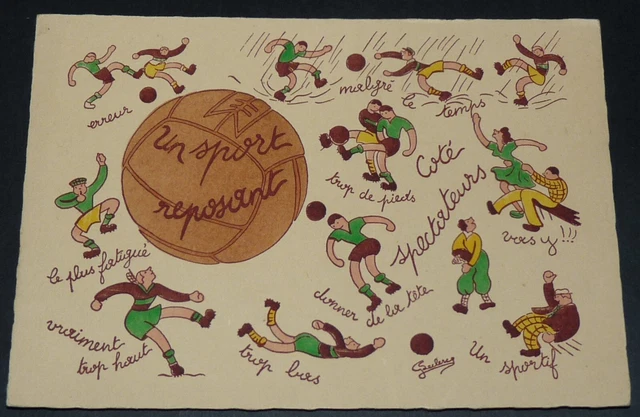 erreur
malgré le temps
Un sport
reposant
trop de pieds
Coté
spectateurs
vas y!!!
le plus fatigué
donner de la tête
vraiment
trop haut
trop bas
Un sportif